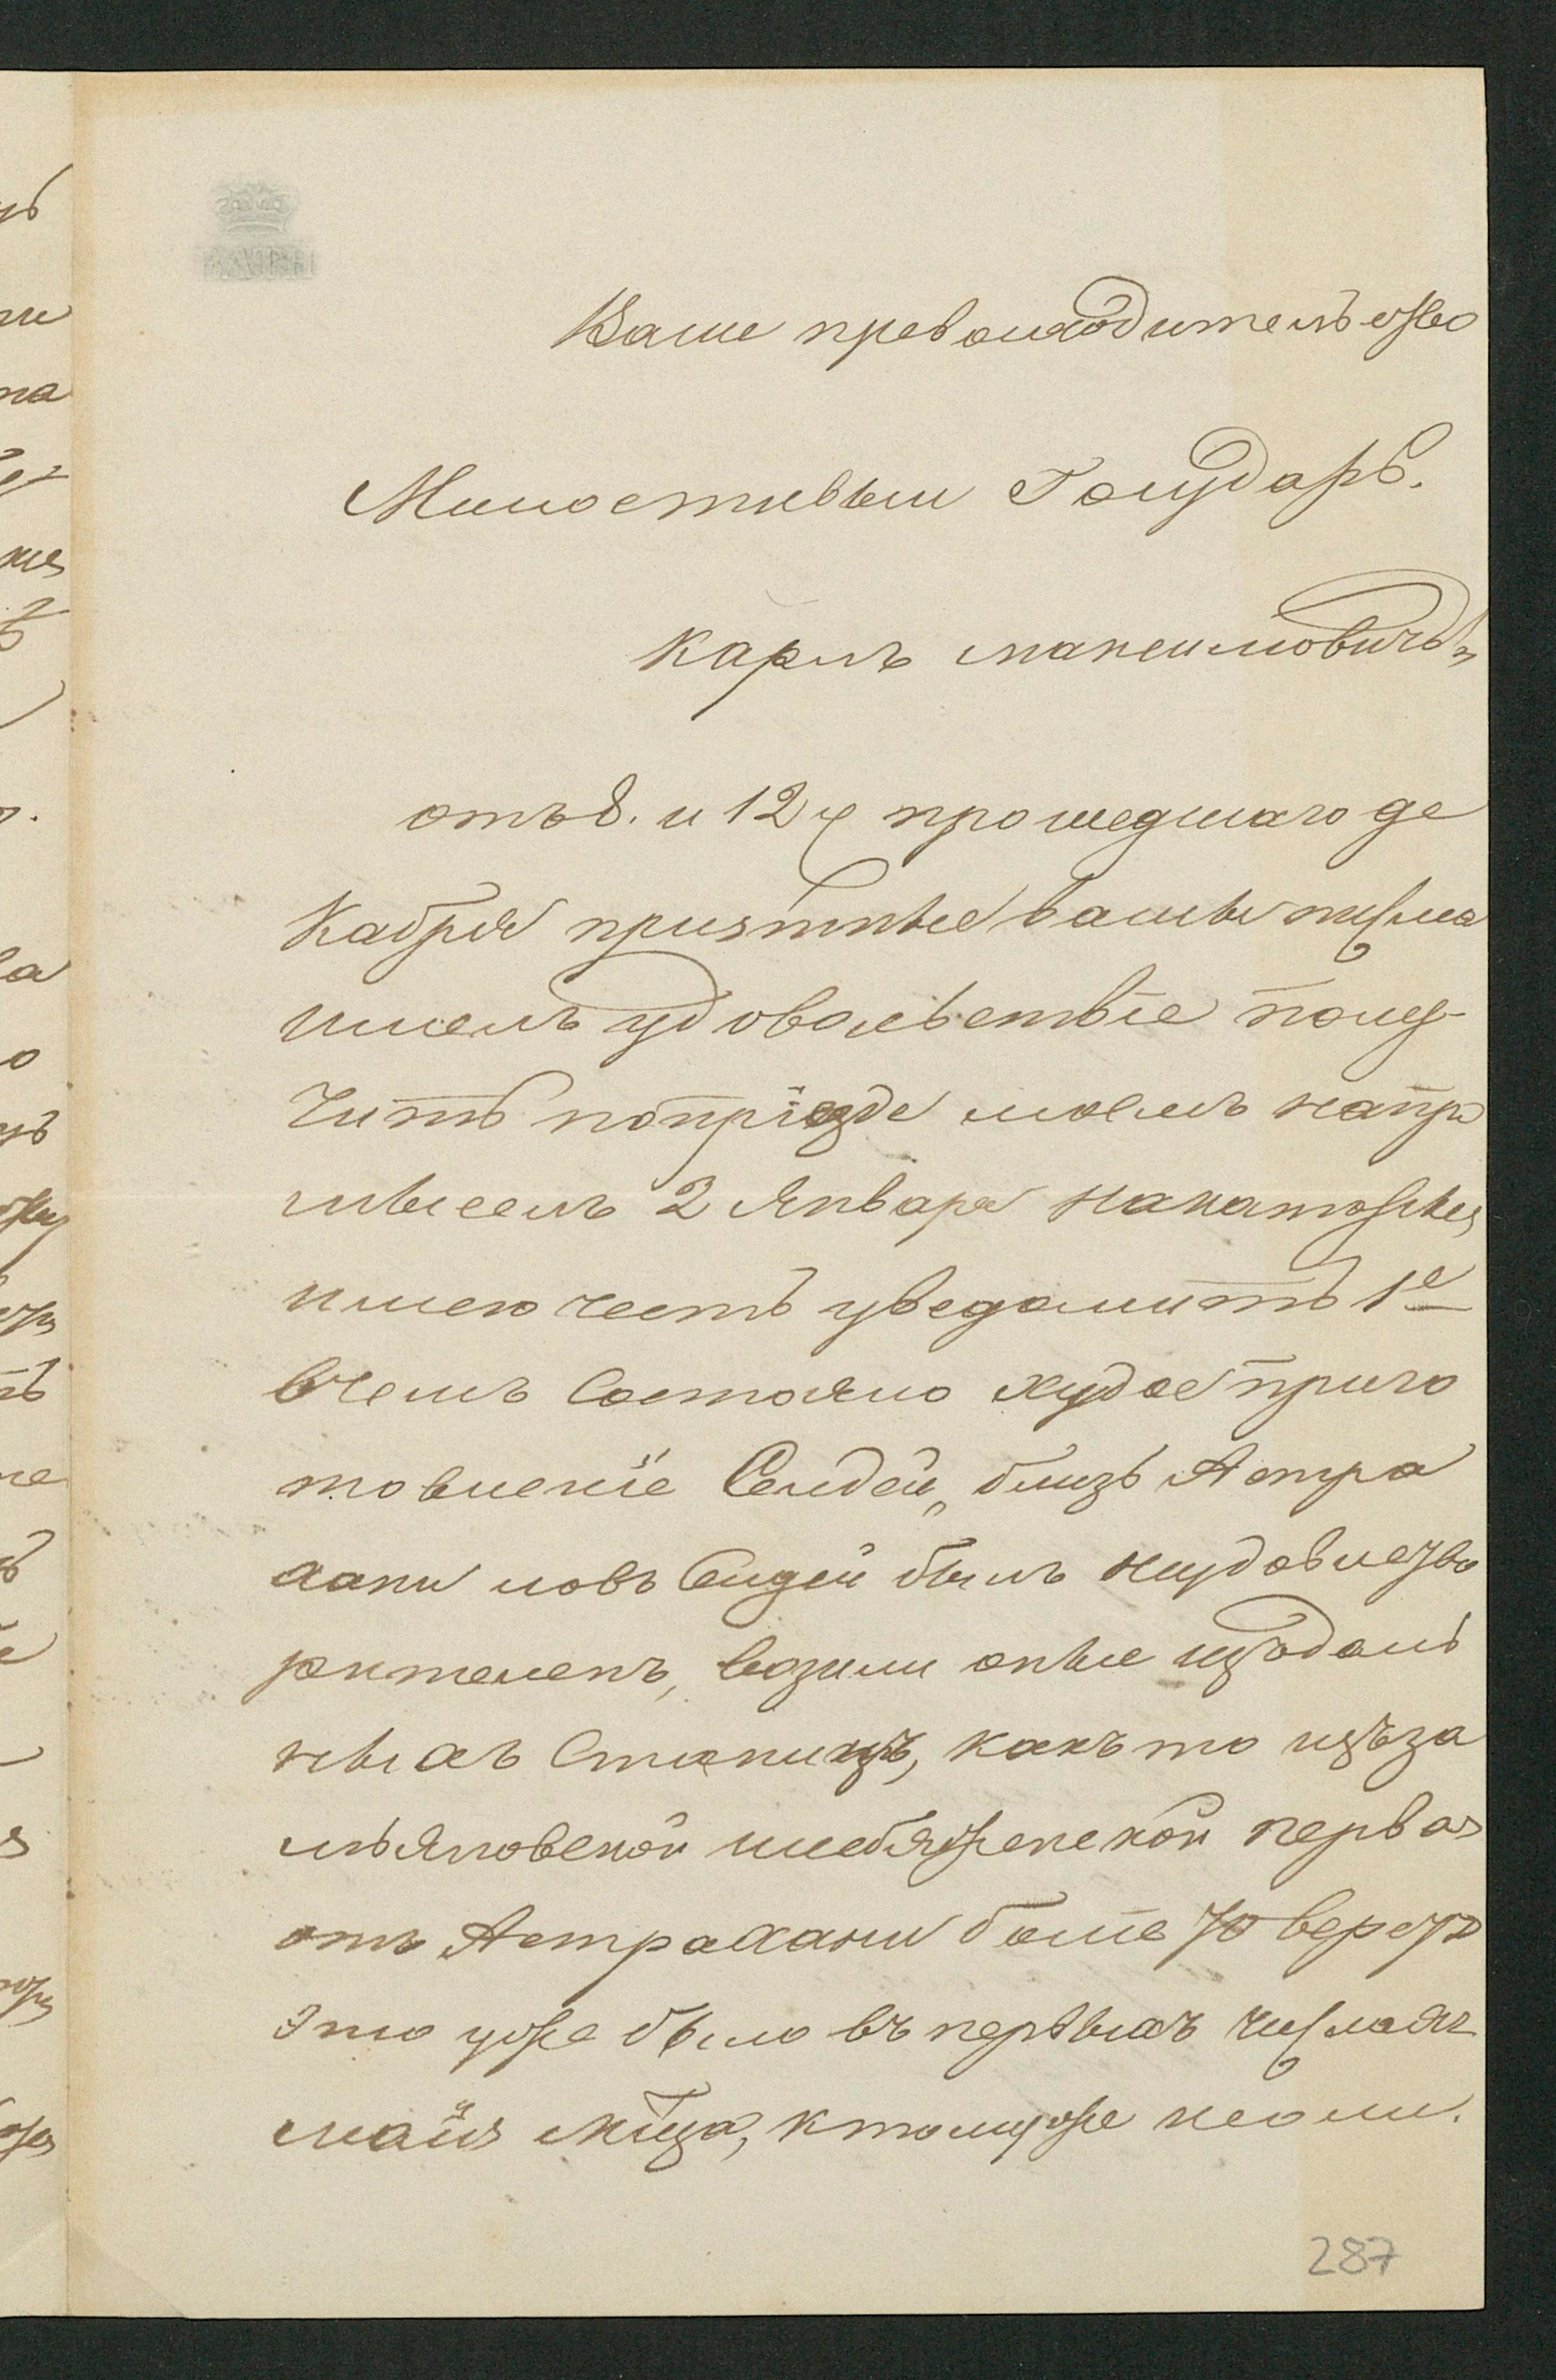 Ваше превосходительство
Милостивыи Государь.
Карлъ максимовичъ,
отъ 8. и 12 ч прошедшаго де
кабря приятные вашы письма
имелъ удовольствіе полу-
чить поприезде моемъ напро
мыселъ 2 Января
имею честь уведомить 1е
вчемъ Состояло худое приго
товленіе Селдеи, близъ Астра
хани ловъ Селдеи былъ неудовлетво
рителенъ, возили оные изъдаль
ныхъ Станицъ, какъ то изъза
мьяновской илебяженской первая
отъ Астрахани боліе 70 верстъ
Это уже было въ первыхъ числахъ
маія мѣца, ктомуже
287